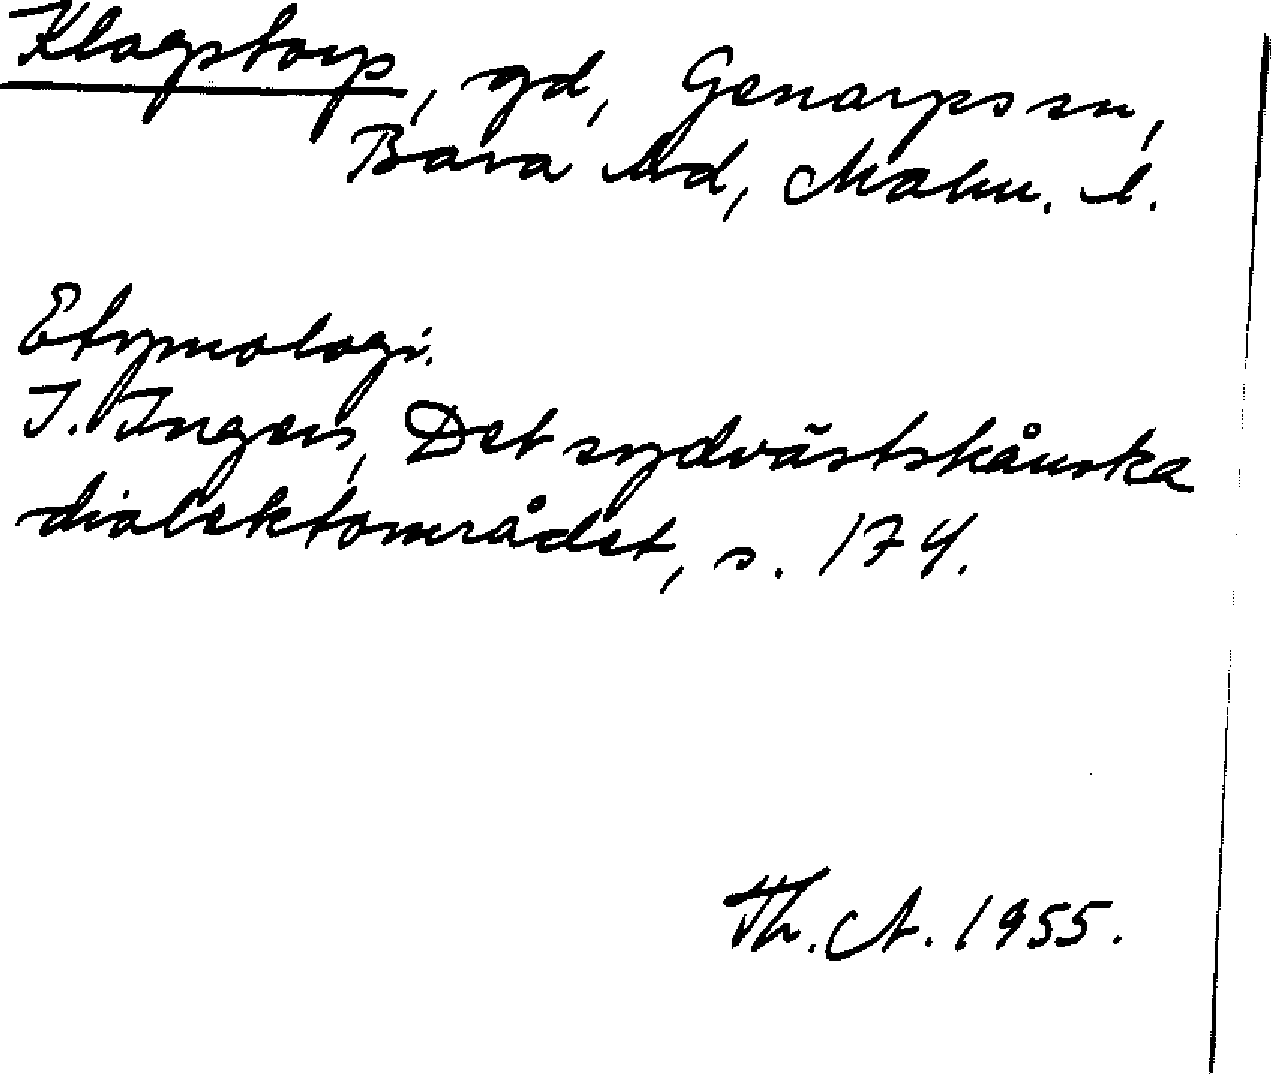 Klagstorp, gd, Genarps sn,
Bara hd, Malm. l.
Etymologi.
I. Ingers, Det sydvästskånska
dialektområdet, s. 174.
Th. A. 1955.